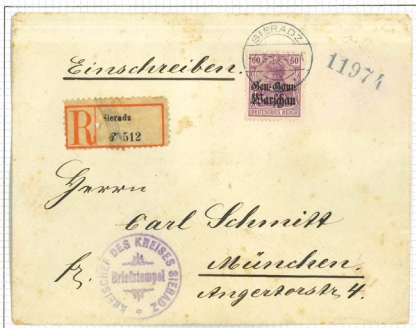 SIERADZ
Einschreiben.
60 60
Gen.-Gouv.
Warschau
DEUTSCHES REICH
11974
R
Sieradz
512
Herrn
Carl Schmitt
fr.
München.
Angertorstr. 4.
KREISCHEF DES KREISES SIERADZ
Briefstempel